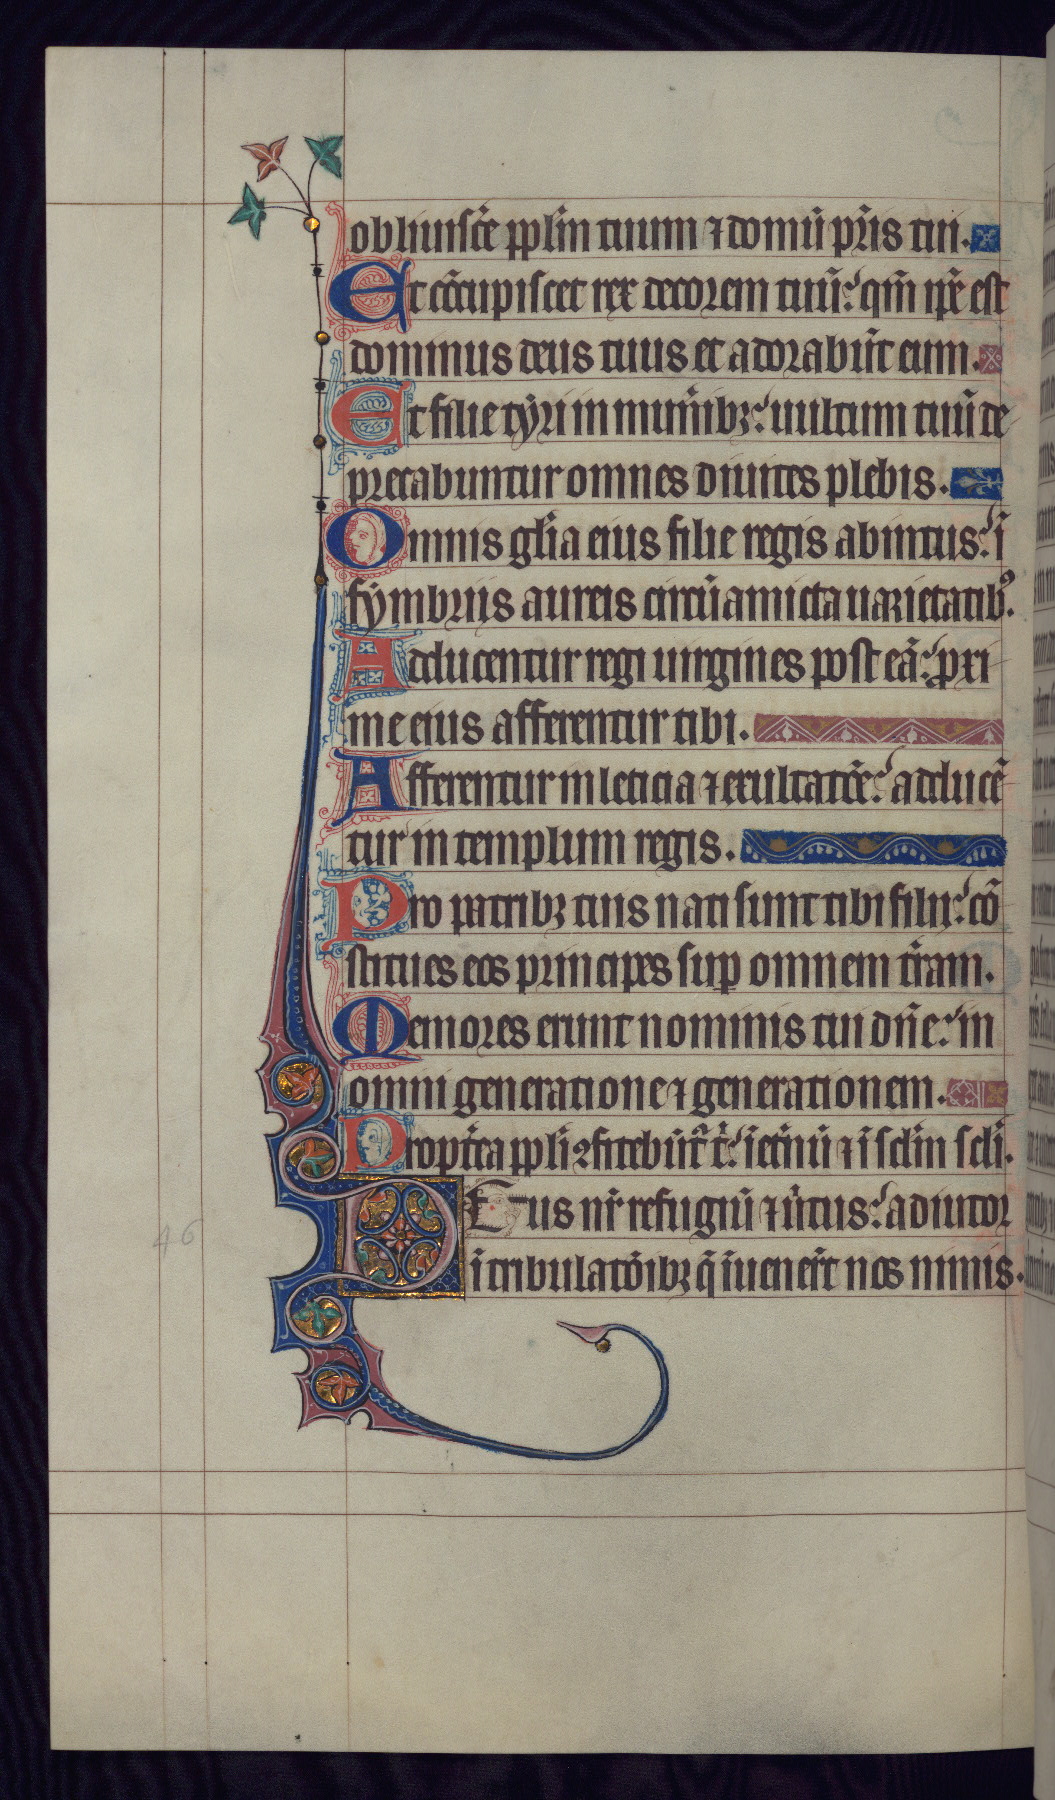 obliuiscẽ pp̄lm̃ tuum ⁊ domũ pr̃is tui.
Et cõcupiscet rex decorem tuũ: qm̃ ip̃e est
dominus deus tuus et adorabũt eum.
Et filie tẏri in munẽribꝫ: uultum tuũ de
precabuntur omnes diuites plebis.
Omnis gl̃ia eius filie regis abintus: ĩ
fẏmbriis aureis circũamicta uarietatibꝰ.
Adducentur regi uirgines post eã: ꝓxi
me eius afferentur tibi.
Afferentur in leticia ⁊ exultatõe: adducẽ
tur in templum regis.
Pro patribꝫ tuis nati sunt tibi filii: cõ
stitues eos principes suꝑ omnem t̃ram.
Memores erunt nominis tui dñe: in
omni generatione ⁊ generationem.
Propt̃ea pp̄li ꝯfitebũt̃ t̃: ĩ et̃nũ ⁊ ĩ sc̄lm̃ sc̄li.
DEus nr̃ refugiũ ⁊ ũtus: adiutor
46
ĩ tribulatõibꝫ q̃ ĩuener̃t nos nimis.